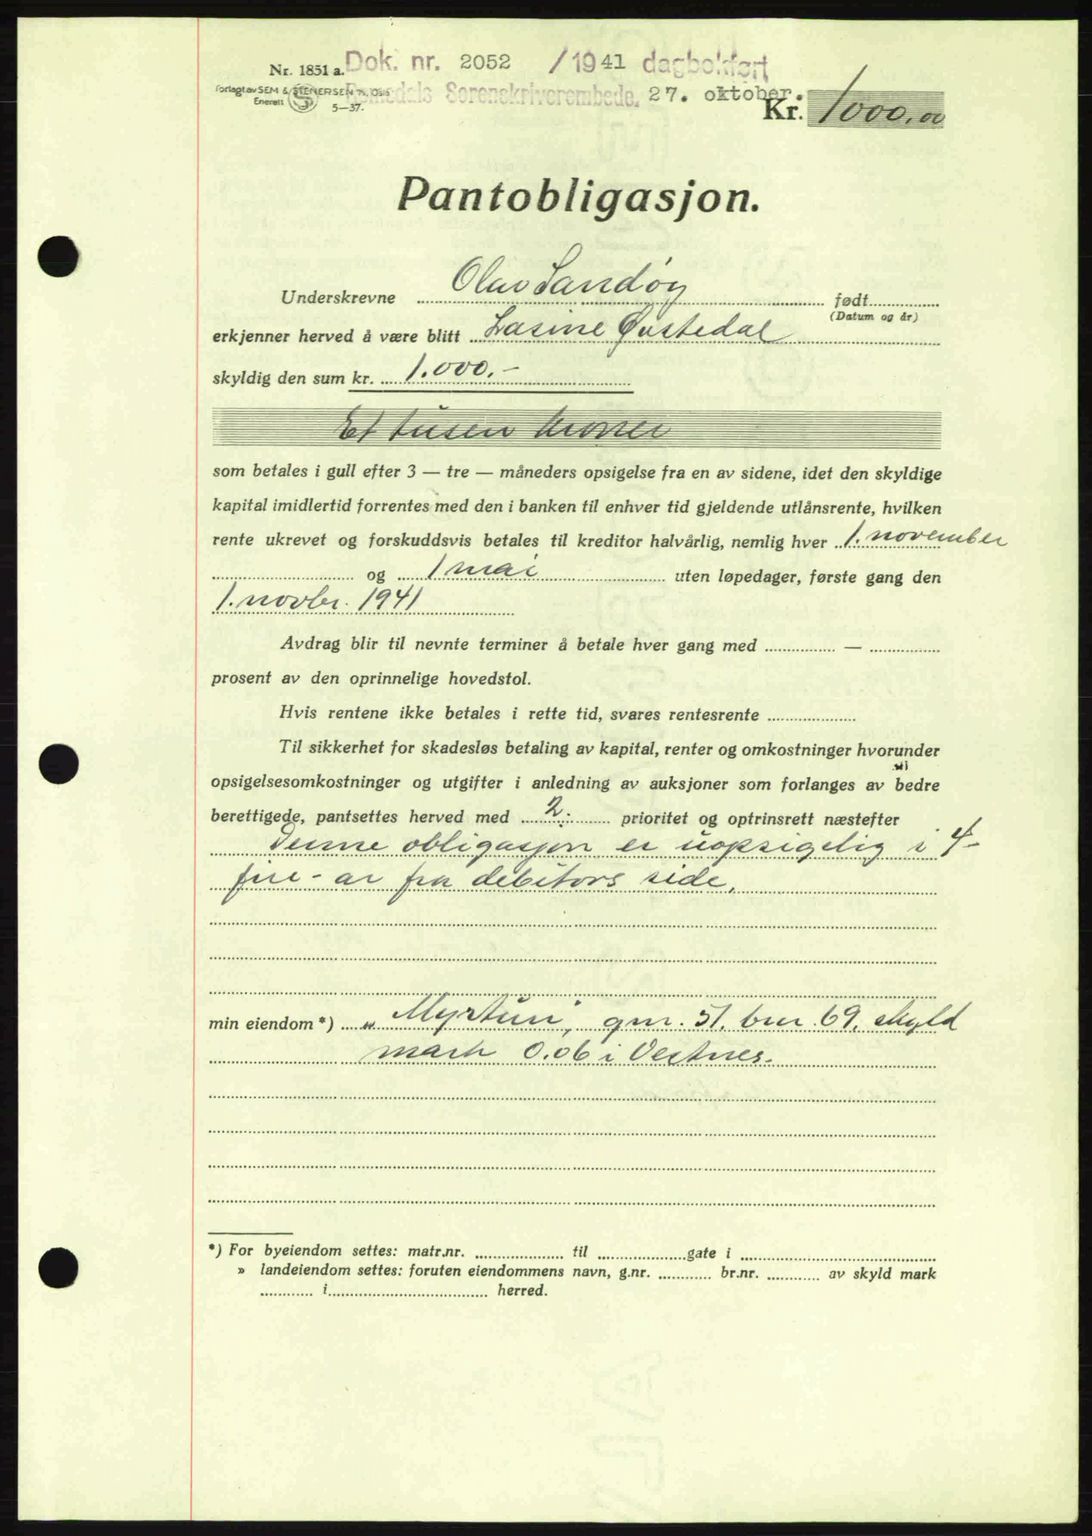 Nr. 1851 a. Dok. nr. 2052 /1941 dagbokført
Forlagt av SEM & STENERSEN A/S, Oslo Romsdals Sorenskriverembede. 27. oktober.
Enerett 5—37. Kr. 1000.00
Pantobligasjon.
Underskrevne Olav Sandøy født
(Datum og år)
erkjenner herved å være blitt Lasine Øvstedal
skyldig den sum kr. 1.000.-
Et tusen kroner
som betales i gull efter 3 — tre — måneders opsigelse fra en av sidene, idet den skyldige
kapital imidlertid forrentes med den i banken til enhver tid gjeldende utlånsrente, hvilken
rente ukrevet og forskuddsvis betales til kreditor halvårlig, nemlig hver 1. november
og 1 mai uten løpedager, første gang den
1. novbr. 1941
Avdrag blir til nevnte terminer å betale hver gang med —
prosent av den oprinnelige hovedstol.
Hvis rentene ikke betales i rette tid, svares rentesrente
Til sikkerhet for skadesløs betaling av kapital, renter og omkostninger hvorunder
opsigelsesomkostninger og utgifter i anledning av auksjoner som forlanges av bedre
berettigede, pantsettes herved med 2. prioritet og optrinsrett næstefter
Denne obligasjon er uopsigelig i 4-
fire - år fra debitors side.
min eiendom *) „Myrtun", gnr. 51. bnr. 69. skyld
mark 0.06 i Vestnes.
*) For byeiendom settes: matr.nr. til gate i
» landeiendom settes: foruten eiendommens navn, g.nr. br.nr. av skyld mark
i herred.